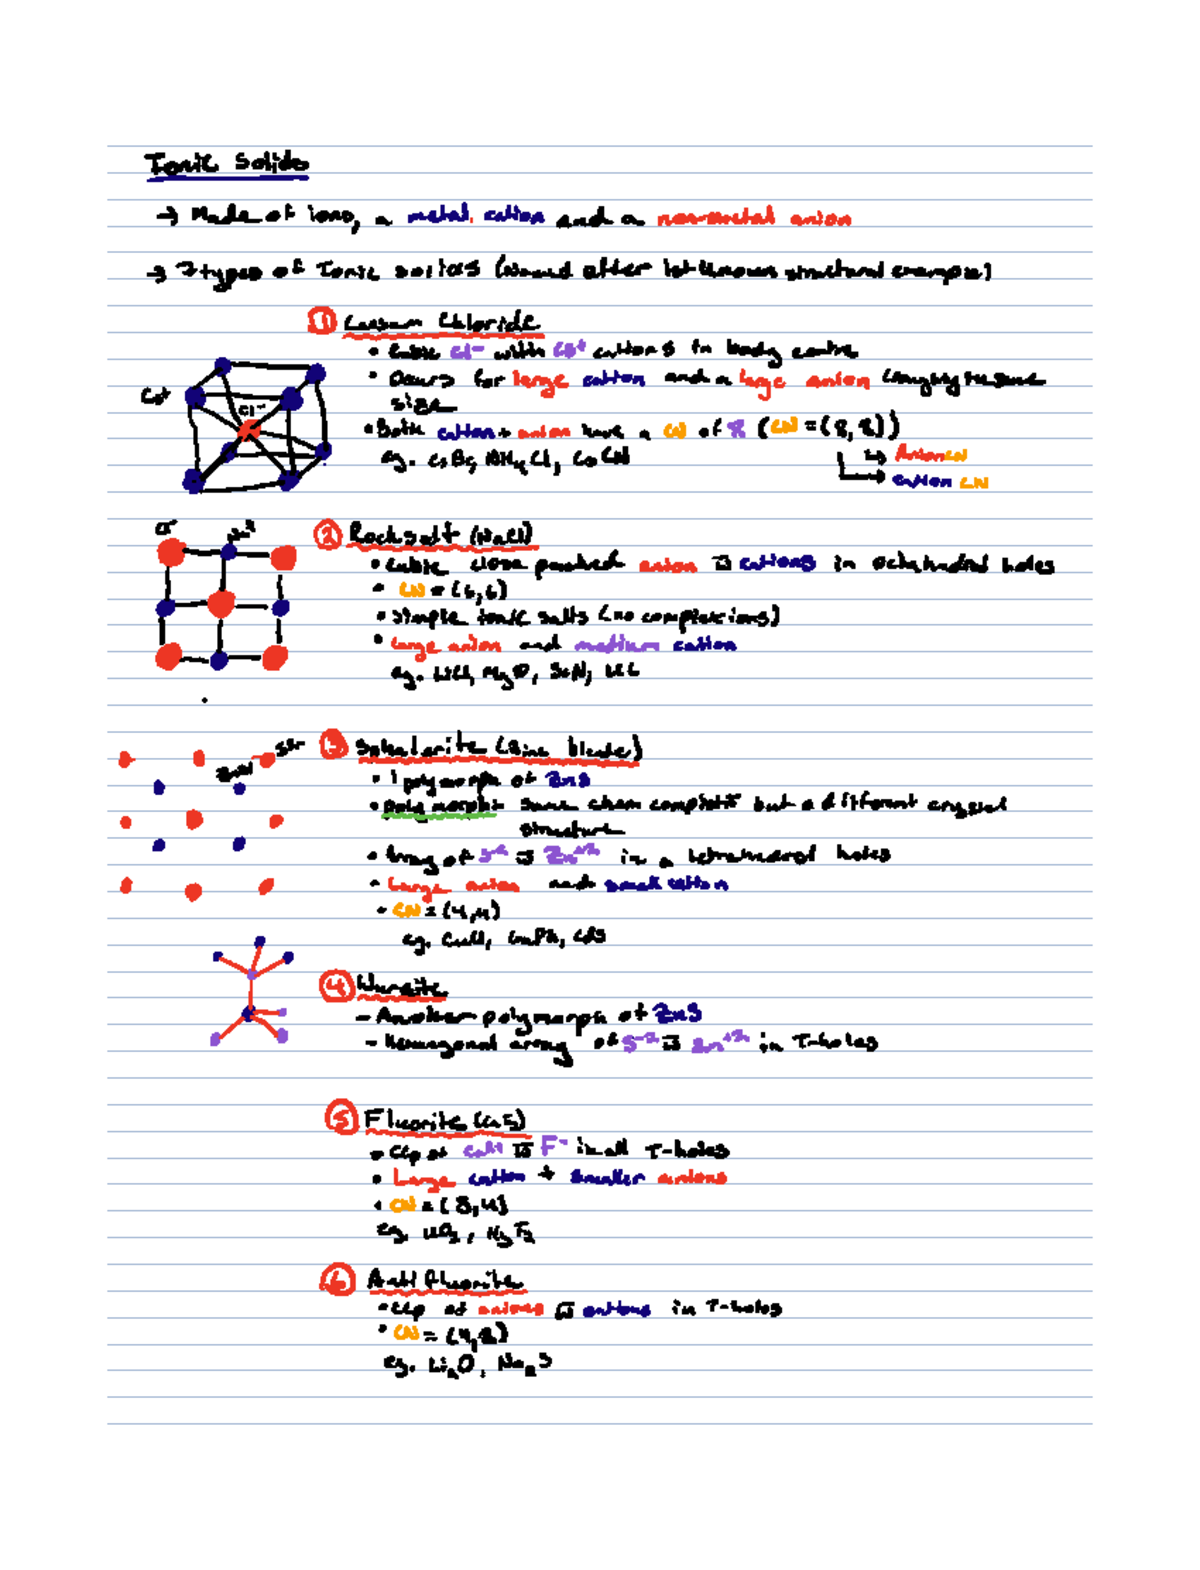 Ionic Solids
→ Made of ions, a metal cation and a non-metal anion
→ 7 types of Ionic solids (Named after 1st known structural example)
① Cesium Chloride
• Cubic Cl⁻ with Cs⁺ cations in body centre
• Occurs for large cation and a large anion (roughly the same
size
• Both cation + anion have a CN of 8 (CN = (8, 8))
eg. CsBr, NH₄Cl, CsCN
↳ Anion CN
↳ cation CN
Cs+
Cl⁻
② Rocksalt (NaCl)
• Cubic close packed anion w cations in octahedral holes
• CN = (6,6)
• Simple ionic salts (no complex ions)
• Large anion and medium cation
eg. LiCl, MgO, ScN, UC
③ Sphalerite (Zinc blende)
• 1 polymorph of ZnS
• Polymorph: same chem but a different crystal
structure
• Array of S⁻² w Zn⁺² in a tetrahedral holes
• Large anion and small cation
• CN = (4,4)
eg. CuCl, CdS
④ Wurzite
- Another polymorph of ZnS
- Hexagonal array of S⁻² w Zn⁺² in T-holes
⑤ Fluorite
• CCp of w F⁻ in all T-holes
• Large cation + smaller anions
• CN = (8,4)
eg. UO₂,
⑥ Anti fluorite
• CCp of anions w cations in T-holes
• CN = (4,8)
eg. Li₂O, Na₂S